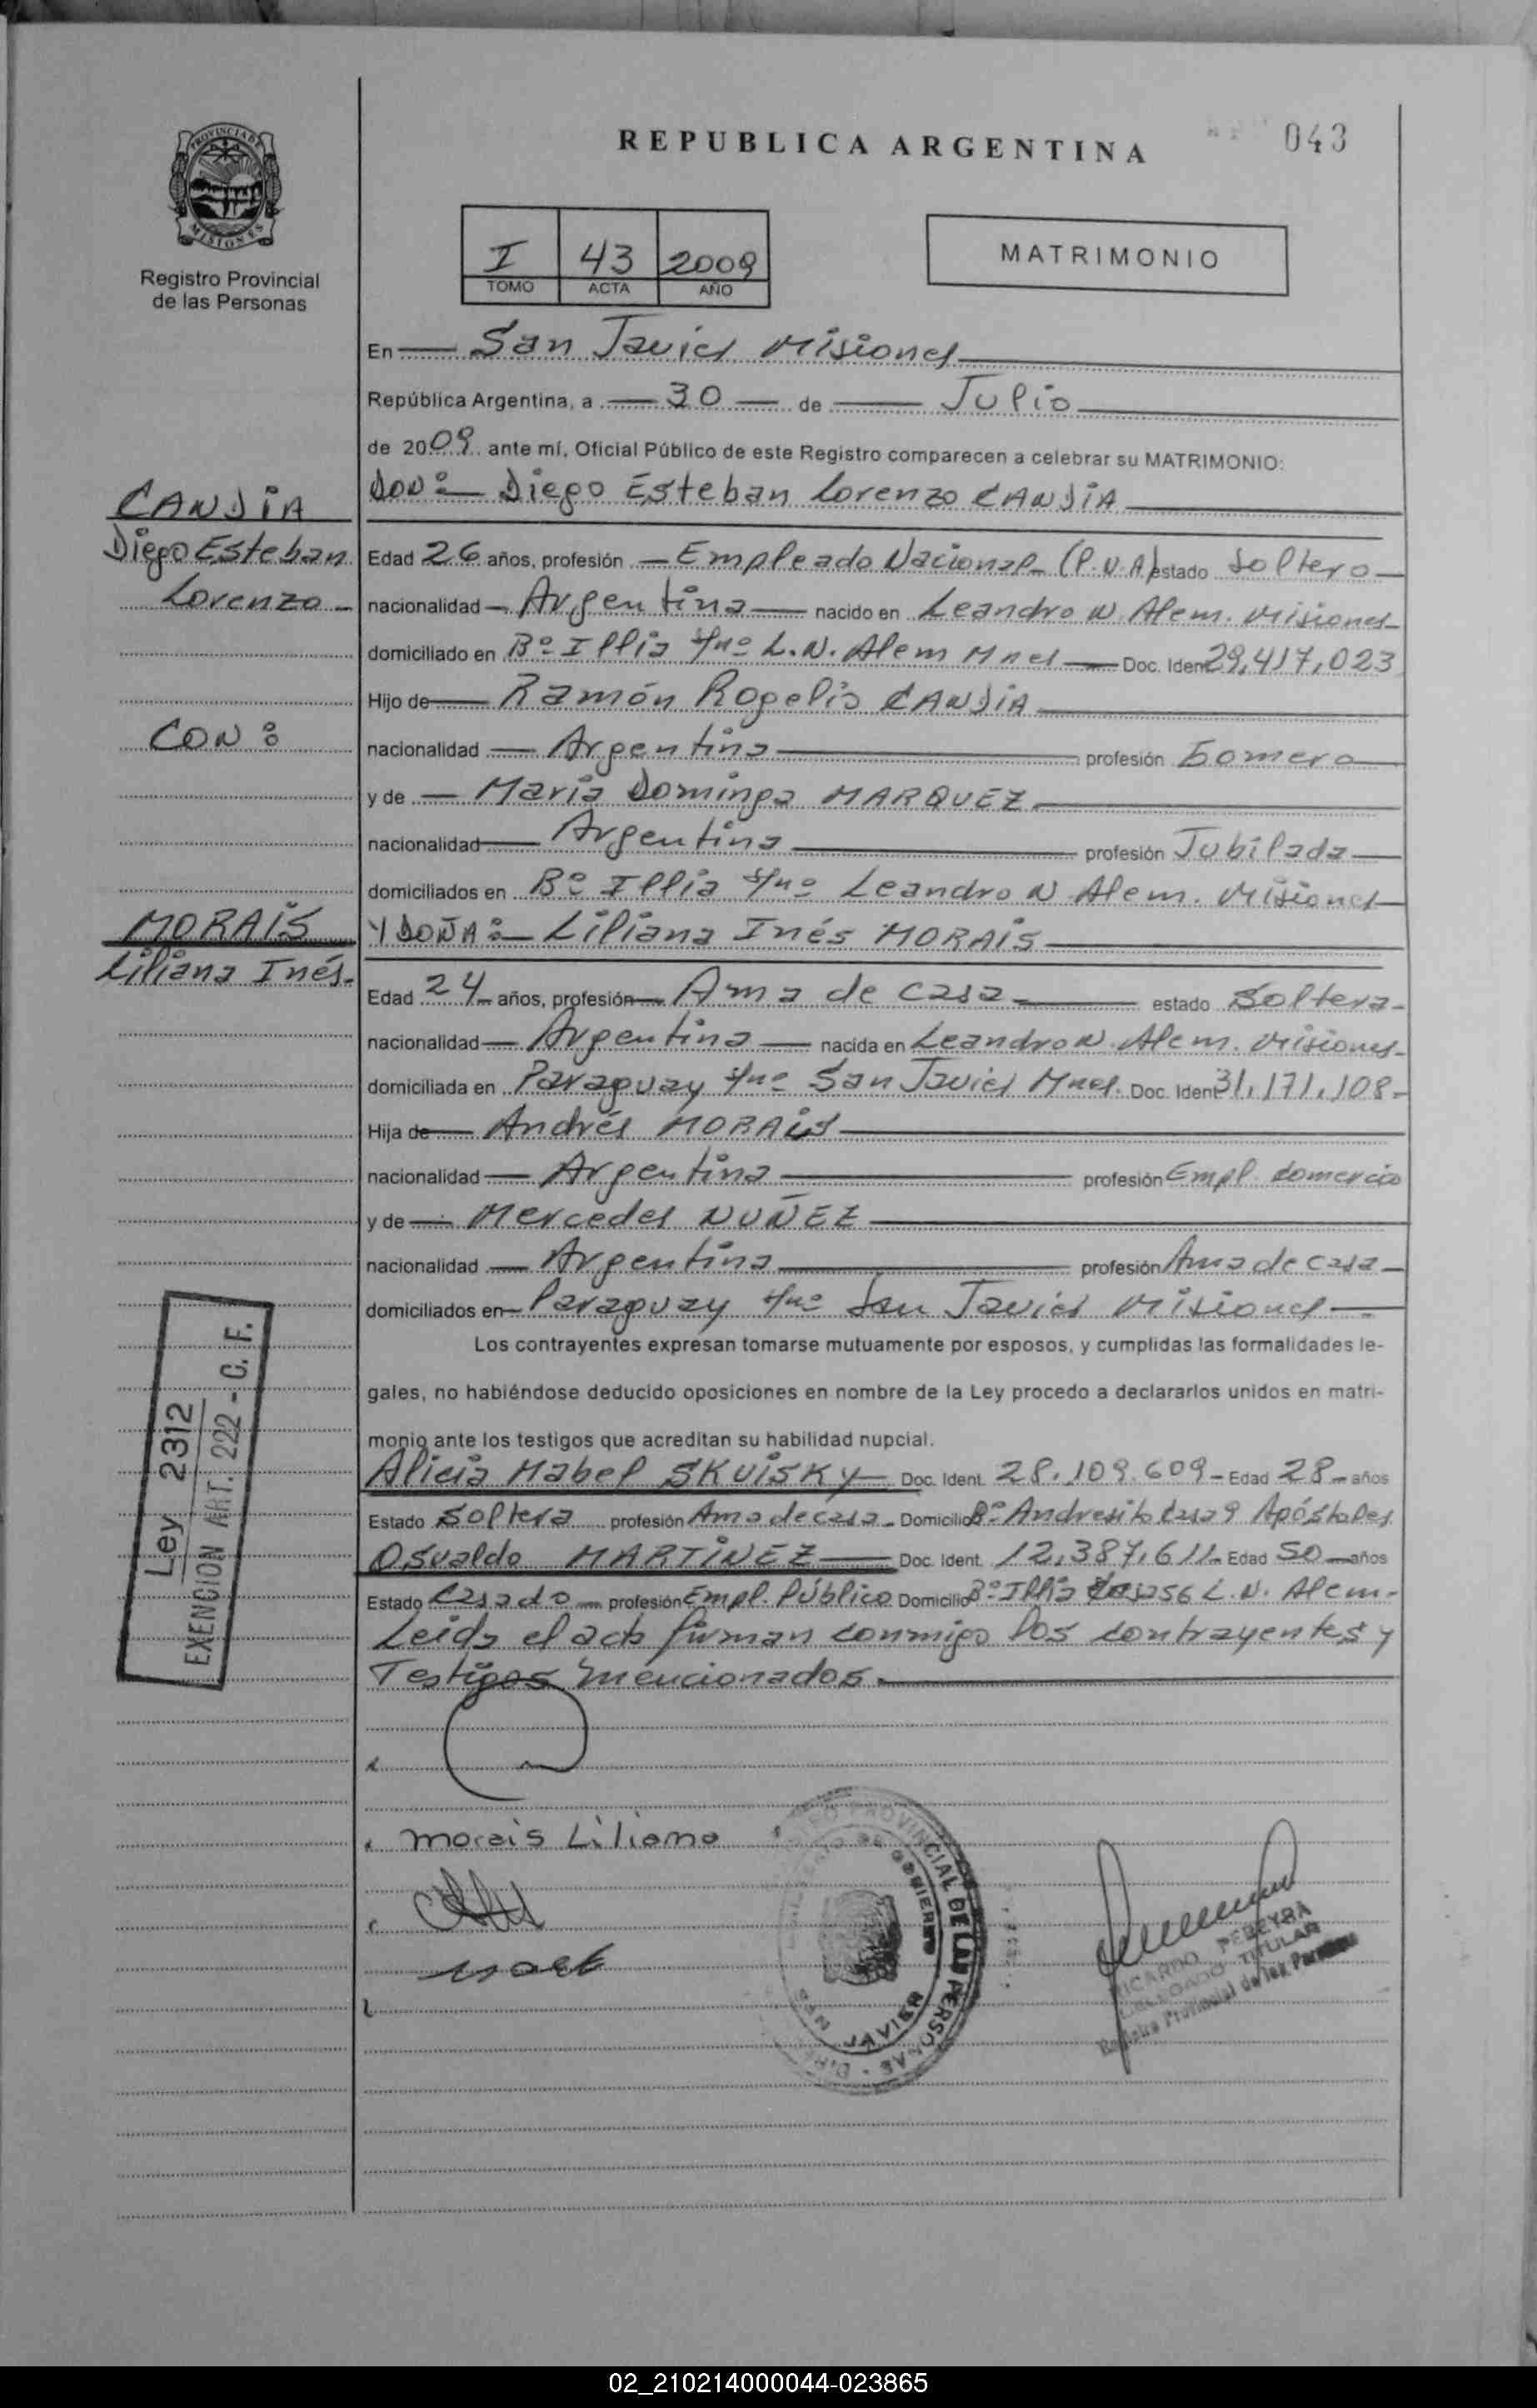 REPUBLICA ARGENTINA
043
PROVINCIA DE
MISIONES
Registro Provincial
de las Personas
I 43 2009
TOMO ACTA AÑO
MATRIMONIO
En San Javier Misiones
República Argentina, a 30 de Julio
de 2009 ante mí, Oficial Público de este Registro comparecen a celebrar su MATRIMONIO:
CANDIA
Diego Esteban
Lorenzo
CON:
MORAIS
Liliana Inés.
DON: Diego Esteban Lorenzo CANDIA
Edad 26 años, profesión Empleado Nacional (P.N.A) estado Soltero
nacionalidad Argentina nacido en Leandro N. Alem. Misiones
domiciliado en Bº Illia s/nº L.N. Alem Mnes Doc. Ident 29,417,023
Hijo de Ramón Rogelio CANDIA
nacionalidad Argentina profesión Gomero
y de María Dominga MARQUEZ
nacionalidad Argentina profesión Jubilada
domiciliados en Bº Illia s/nº Leandro N. Alem. Misiones
Y DOÑA: Liliana Inés MORAIS
Edad 24 años, profesión Ama de casa estado Soltera
nacionalidad Argentina nacida en Leandro N. Alem. Misiones
domiciliada en Paraguay s/nº San Javier Mnes. Doc. Ident 31,171,108
Hija de Andrés MORAIS
nacionalidad Argentina profesión Empl. Comercio
y de Mercedes NUÑEZ
nacionalidad Argentina profesión Ama de casa
domiciliados en Paraguay s/nº San Javier Misiones
Los contrayentes expresan tomarse mutuamente por esposos, y cumplidas las formalidades le-
gales, no habiéndose deducido oposiciones en nombre de la Ley procedo a declararlos unidos en matri-
monio ante los testigos que acreditan su habilidad nupcial.
Alicia Mabel SKUISKY Doc. Ident. 28.109.609 Edad 28 años
Estado Soltera profesión Ama de casa Domicilio Bº Andresito Casa 9 Apóstoles
Osvaldo MARTINEZ Doc. Ident. 12,387,611 Edad 50 años
Estado Casado profesión Empl. Público Domicilio Bº Illia Casa 56 L.N. Alem
Leida el acta firman conmigo los contrayentes y
Testigos mencionados.
Ley 2312
EXENCION ART. 222 - C. F.
Morais Liliana
REGISTRO PROVINCIAL DE LAS PERSONAS
SAN JAVIER
RICARDO PEREYRA
DELEGADO TITULAR
Registro Provincial de las Personas
02_210214000044-023865